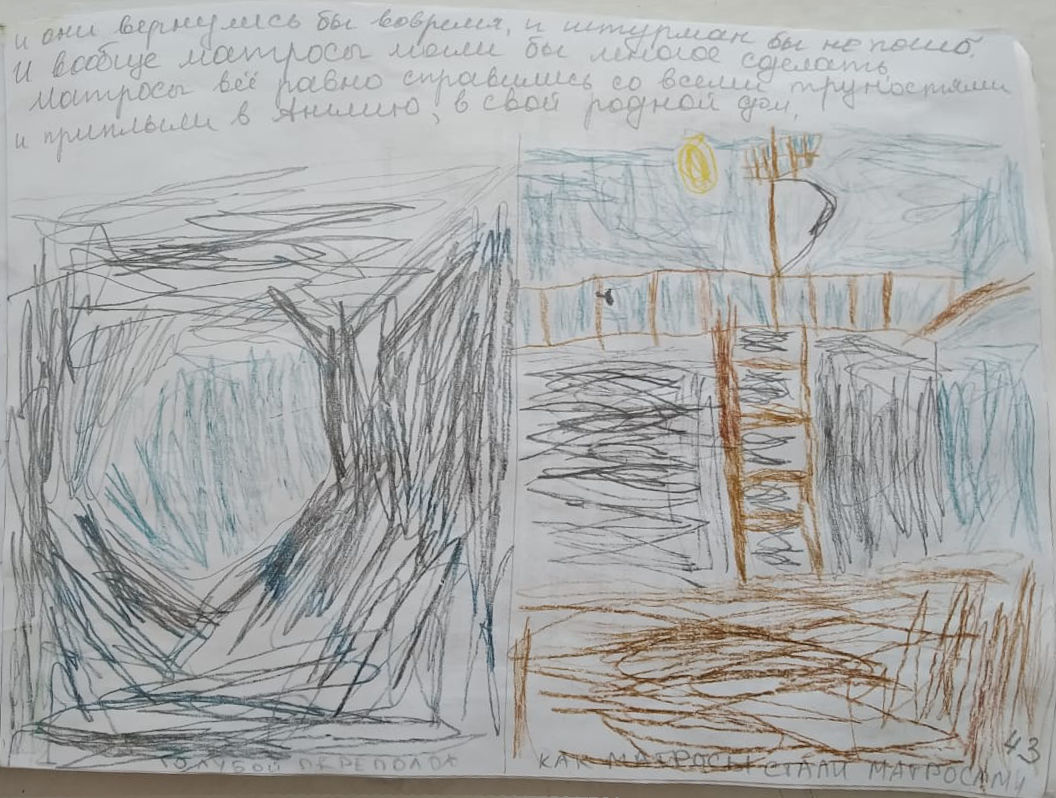 и они вернулись бы вовремя, и штурман бы не погиб.
И вообще матросы могли бы многое сделать.
Матросы всё равно справились со всеми трудностями
и приплыли в Англию, в свой родной дом.
ГОЛУБОЙ ПЕРЕПОЛОХ
КАК МАТРОСЫ СТАЛИ МАТРОСАМИ
43